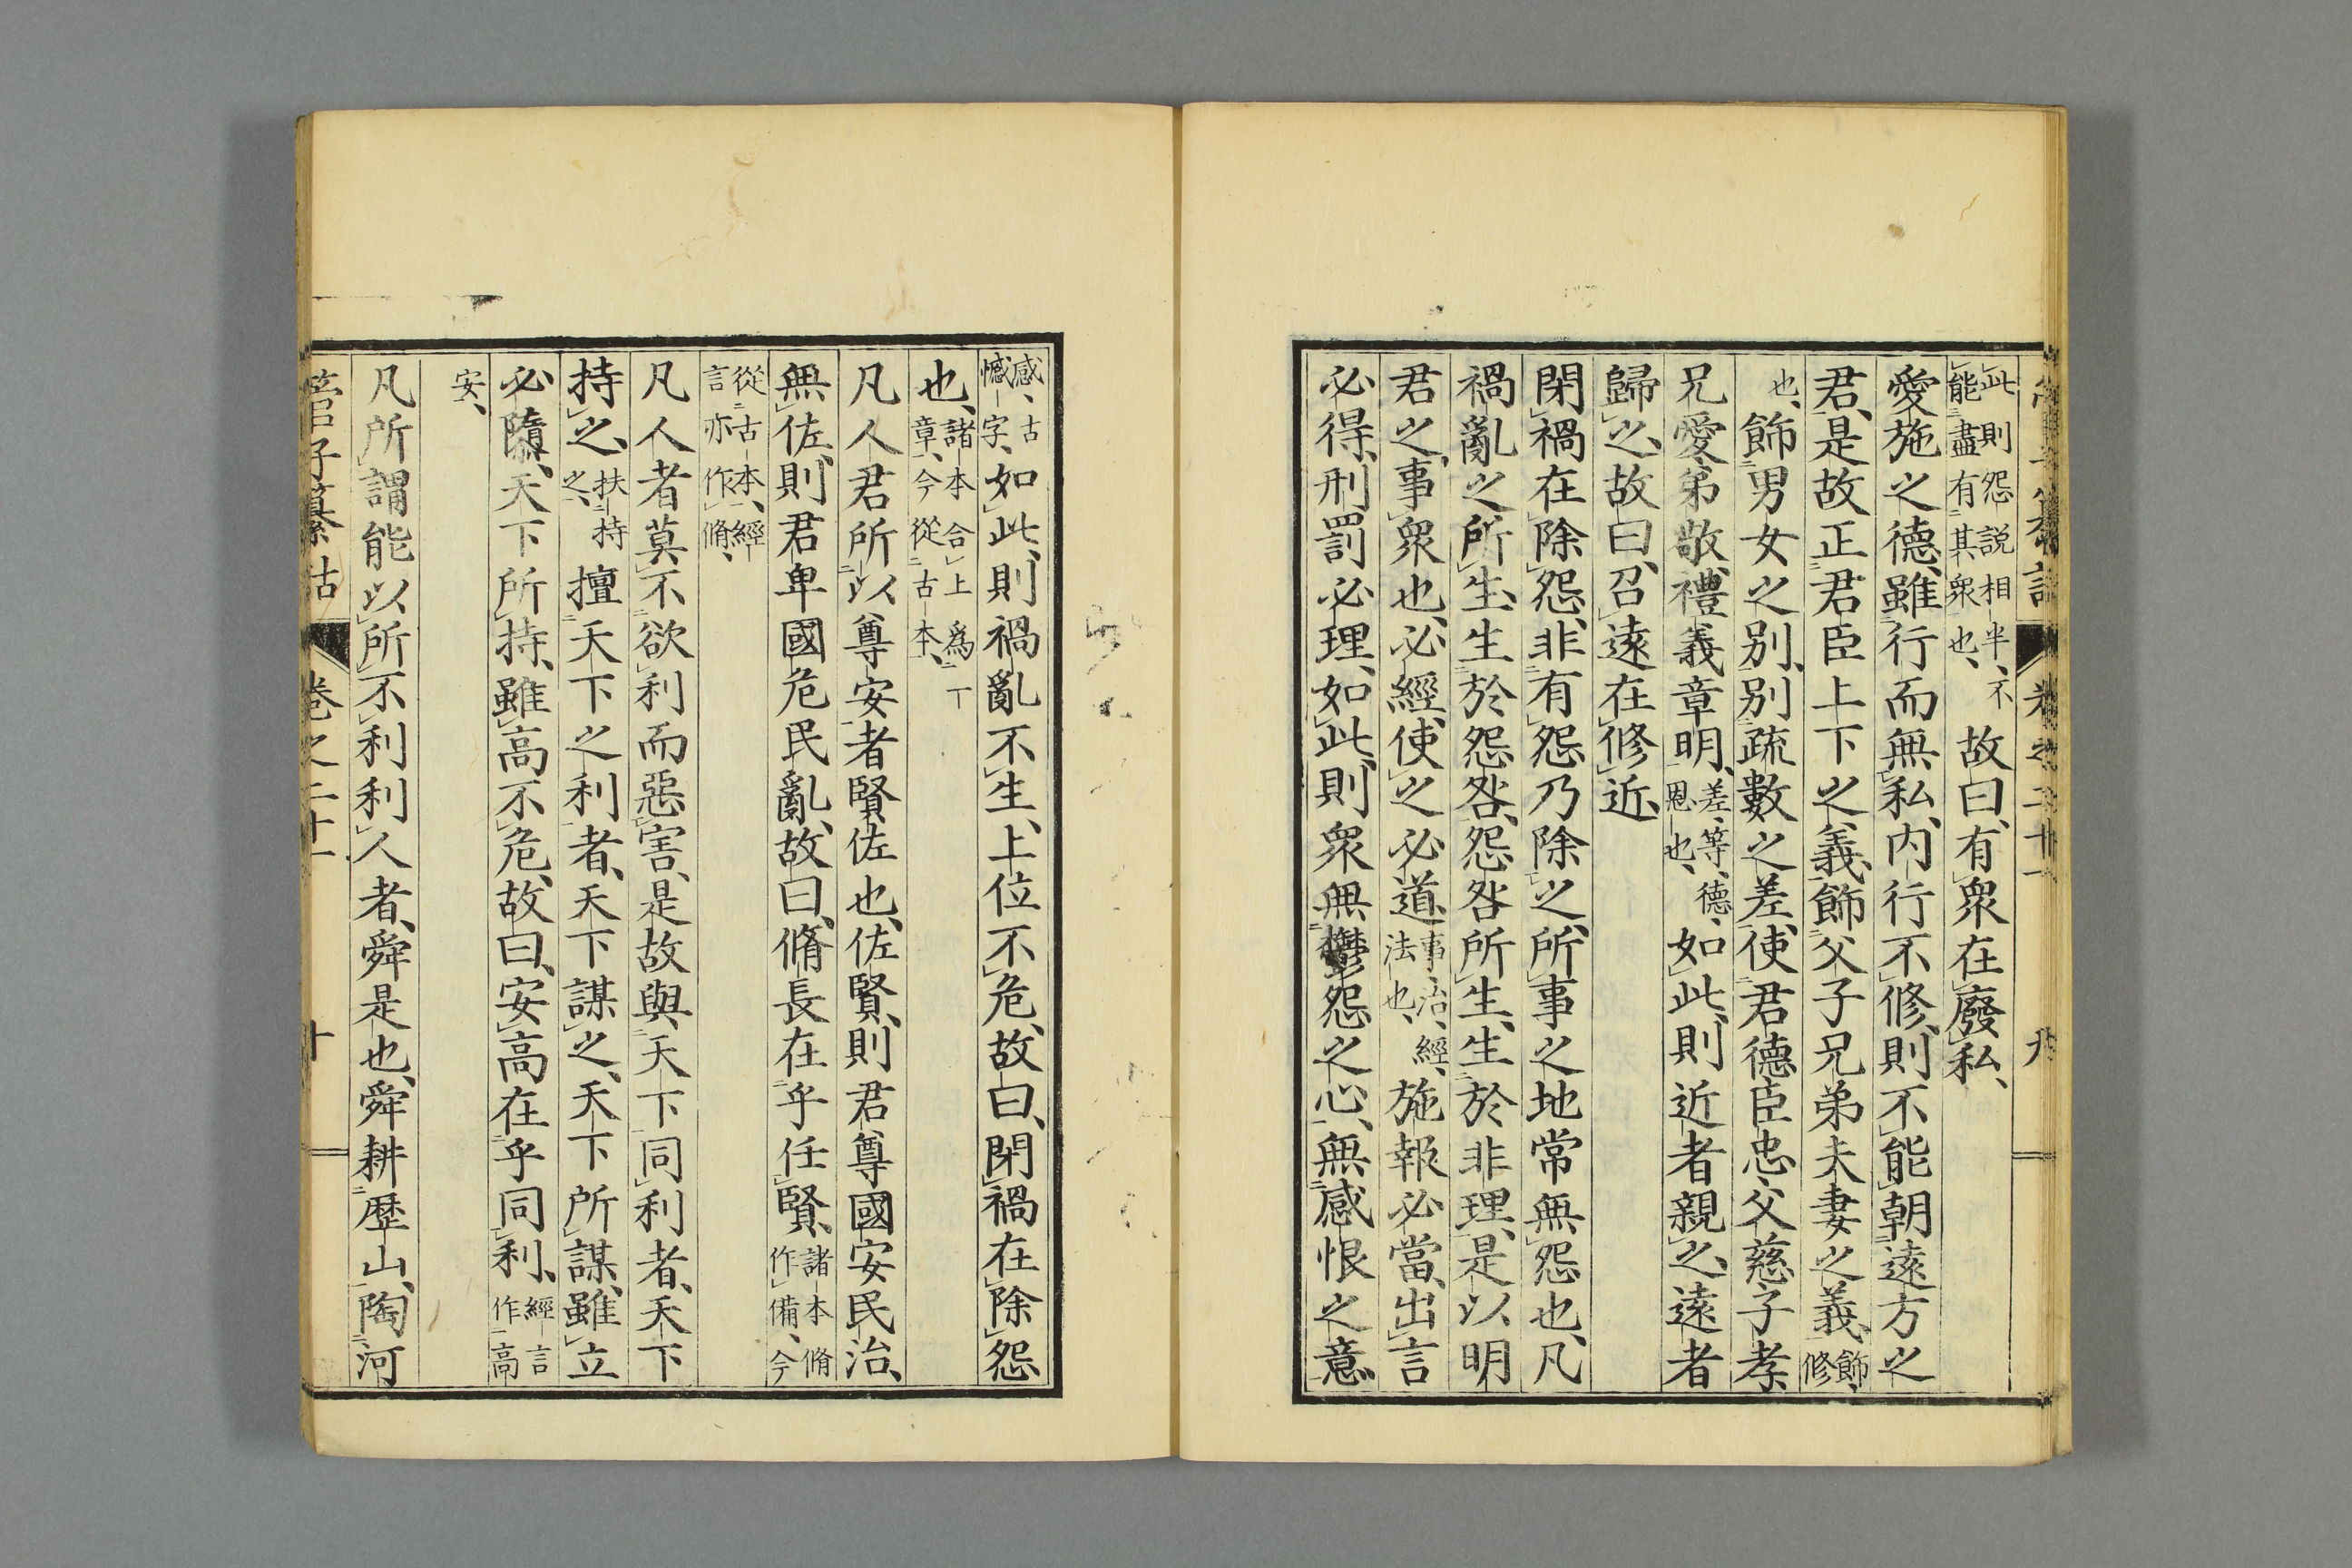 此則怨説相半、不能盡有其衆也、故曰、有衆在廢私、
愛施之德、雖行而無私、内行不修、則不能朝遠方之
君、是故正君臣上下之義、飾父子兄弟夫妻之義、飾、修
也、飾男女之別、別疏數之差、使君德臣忠、父慈子孝、
兄愛弟敬、禮義章明、差、等、德、恩也、如此、則近者親之、遠者
歸之、故曰、召遠在修近、
閉禍在除怨、非有怨乃除之、所事之地常無怨也、凡
禍亂之所生、生於怨咎、怨咎所生、生於非理、是以明
君之事衆也、必經、使之必道、事、治、經、法也、施報必當、出言
必得、刑罰必理、如此、則衆無鬱怨之心、無感恨之意、
感、古憾字、如此、則禍亂不生、上位不危、故曰、閉禍在除怨
也、諸本合上爲一章、今從古本、
凡人君所以尊安者賢佐也、佐賢、則君尊國安民治、
無佐、則君卑國危民亂、故曰、脩長在乎任賢、諸本脩作備、今
從古本、經言亦作脩、
凡人者莫不欲利而惡害、是故與天下同利者、天下
持之、扶持之、擅天下之利者、天下謀之、天下所謀、雖立
必隳、天下所持、雖高不危、故曰、安高在乎同利、經言作高
安、
凡所謂能以所不利利人者、舜是也、舜耕歷山、陶河
管子纂詁 卷之二十一 十